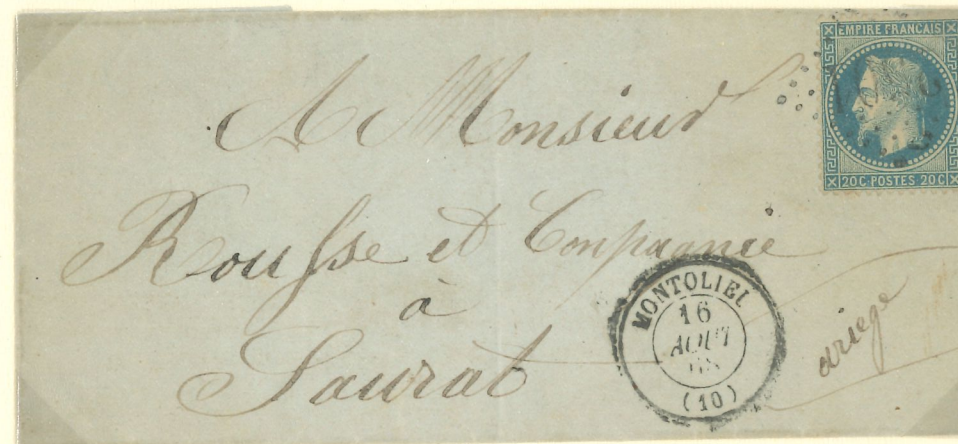 EMPIRE FRANÇAIS
20C POSTES 20C
A Monsieur
Rousse et Compagnie
à
Saurat
ariege
MONTOLIEU
16
AOUT
68
(10)